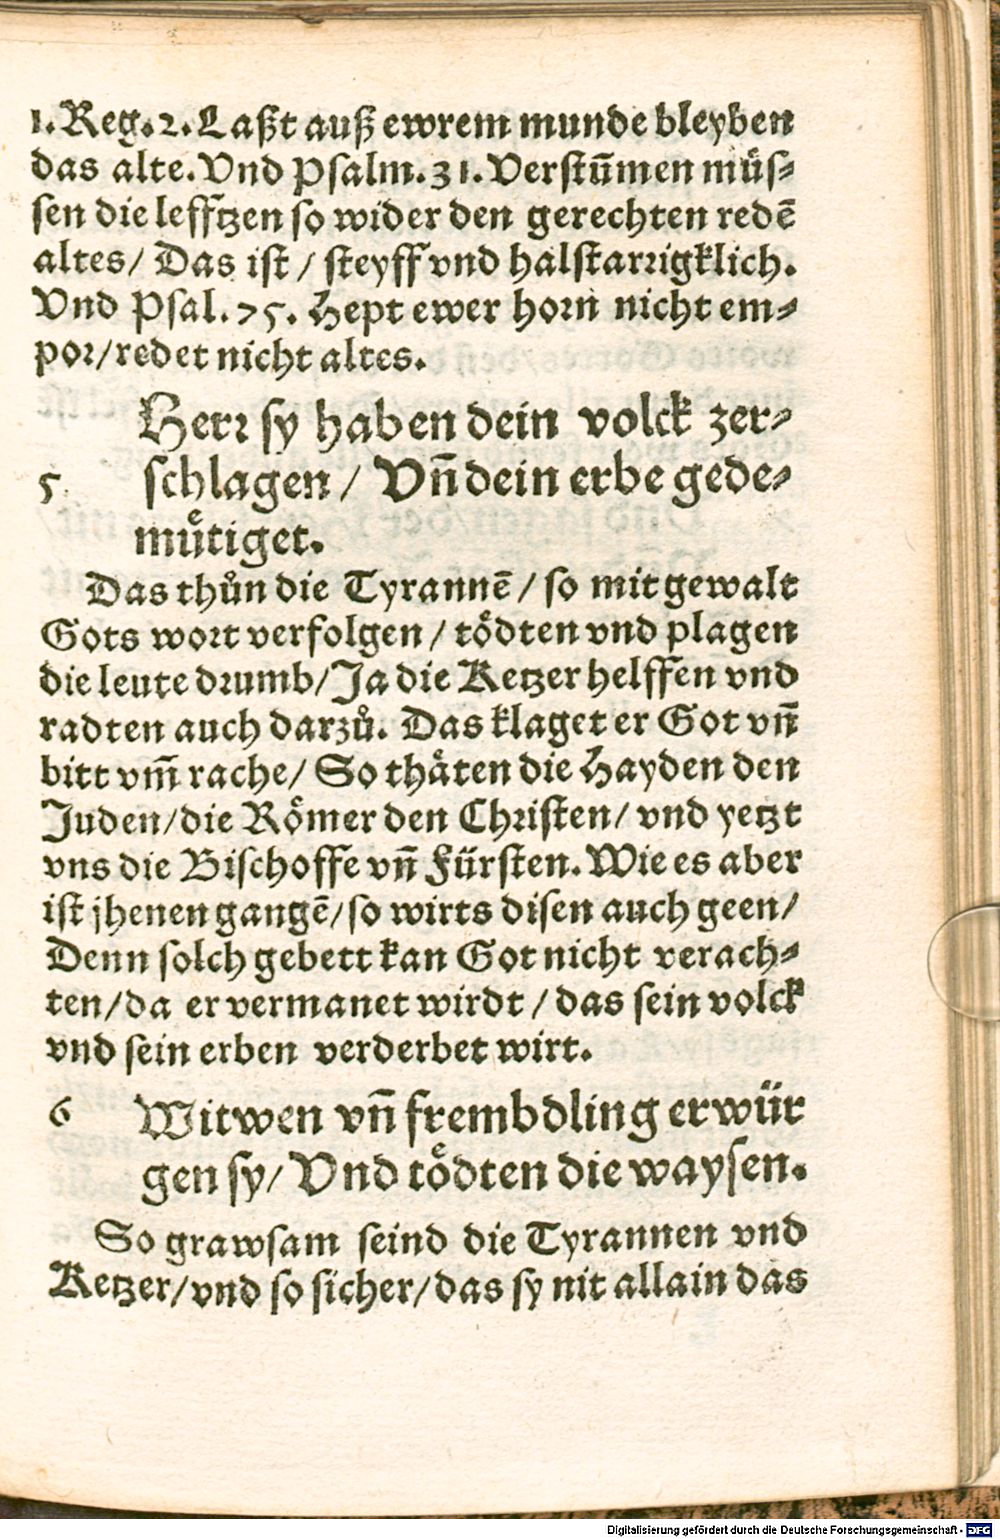 1. Reg. 2. Laßt auß ewrem munde bleyben
das alte. Vnd Psalm. 31. Verstūmen müs⸗
sen die lefftzen so wider den gerechten redē
altes/ Das ist / steyff vnd halstarrigklich.
Vnd Psal. 75. Hept ewer horn nicht em⸗
por/redet nicht altes.
Herr sy haben dein volck zer⸗
5 schlagen / Vn̄ dein erbe gede⸗
muͤtiget.
Das thůn die Tyrannē / so mit gewalt
Gots wort verfolgen / toͤdten vnd plagen
die leute drumb/ Ja die Ketzer helffen vnd
radten auch darzů. Das klaget er Got vn̄
bitt vm̄ rache/ So thaͤten die Hayden den
Juden/die Roͤmer den Christen/ vnd yetzt
vns die Bischoffe vn̄ Fürsten. Wie es aber
ist jhenen gangē/so wirts disen auch geen/
Denn solch gebett kan Got nicht verach⸗
ten/da er vermanet wirdt / das sein volck
vnd sein erben verderbet wirt.
6 Witwen vn̄ frembdling erwür
gen sy/ Vnd toͤdten die waysen.
So grawsam seind die Tyrannen vnd
Ketzer/vnd so sicher/das sy nit allain das
Digitalisierung gefördert durch die Deutsche Forschungsgemeinschaft - DFG